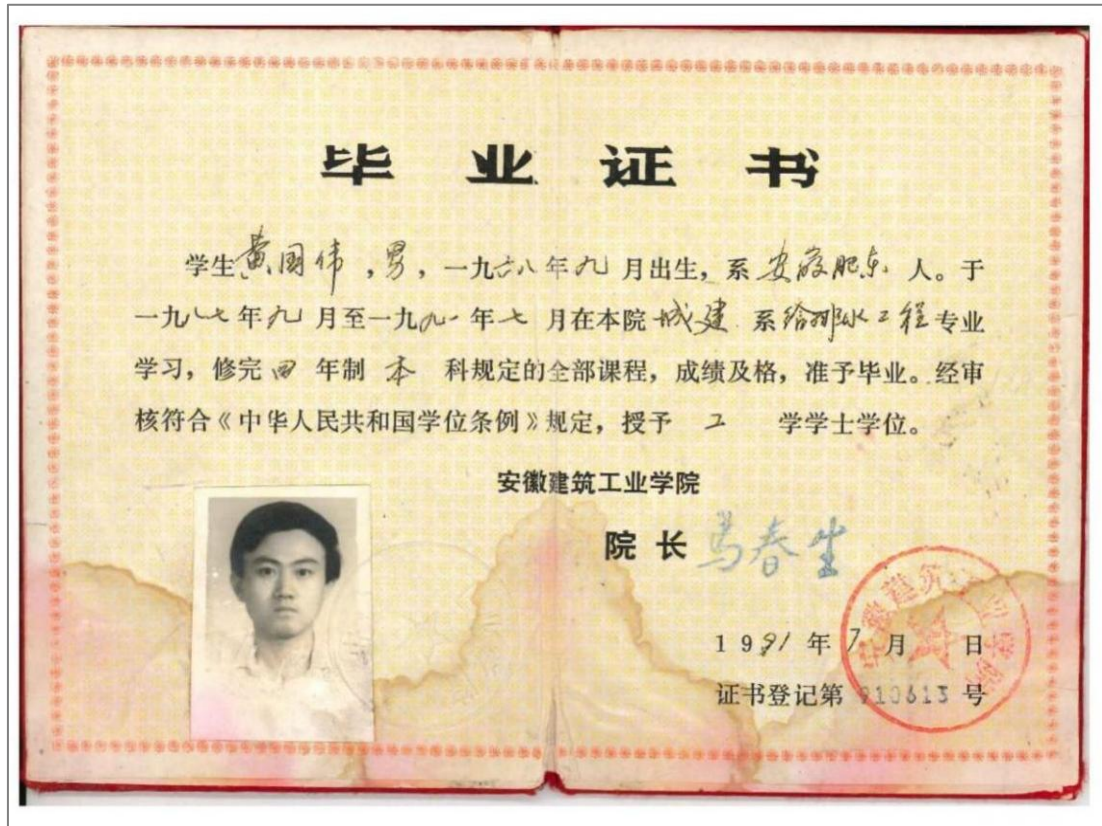 毕业证书
学生黄国伟,男,一九六八年九月出生,系安徽肥东人。于
一九八七年九月至一九九一年七月在本院城建系给排水工程专业
学习,修完四年制本科规定的全部课程,成绩及格,准予毕业。经审
核符合《中华人民共和国学位条例》规定,授予工学学士学位。
安徽建筑工业学院
院长 马春生
1991年7月 日
证书登记第910613号